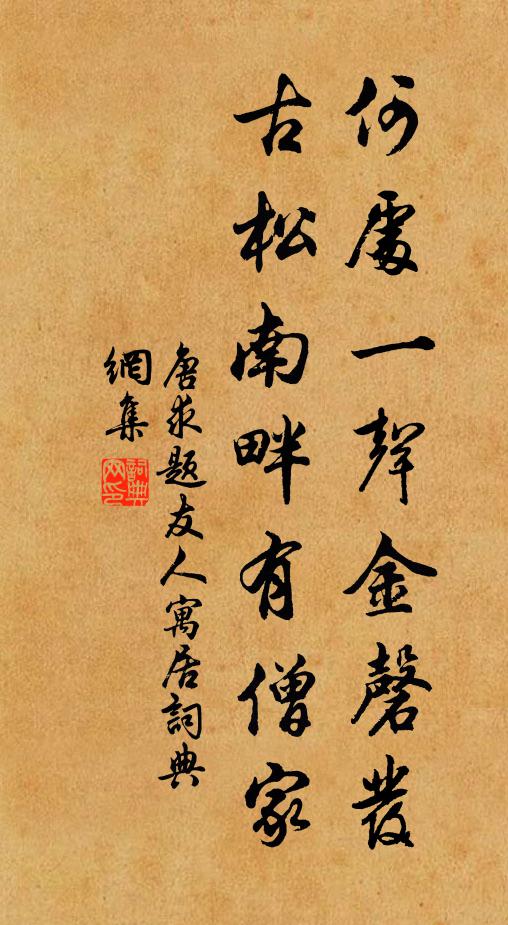 何處一聲金磬發
古松南畔有僧家
唐求題友人寓居詞典
網集
詞典
網印